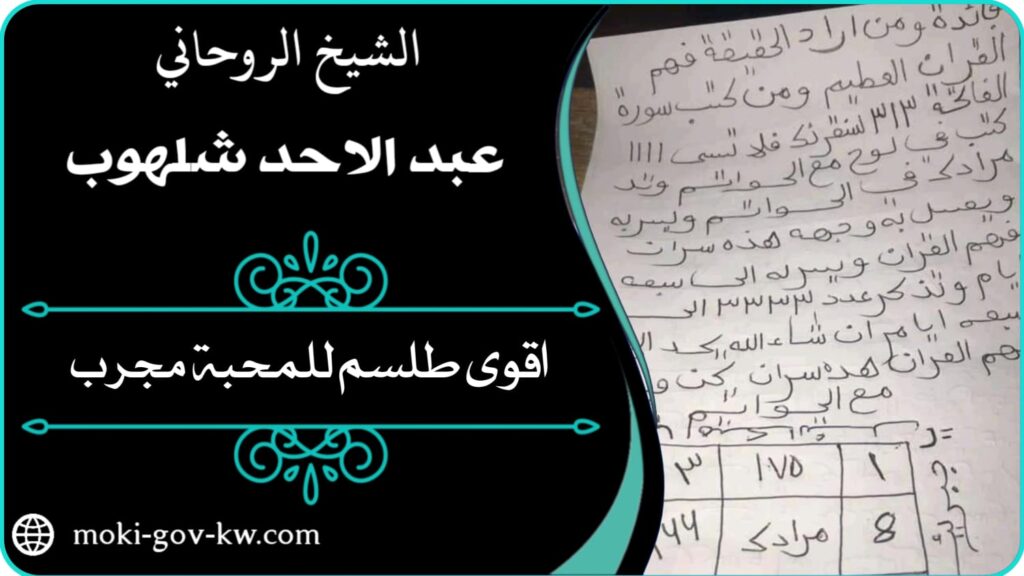 الشيخ الروحاني
عبد الاحد شلهوب
اقوى طلسم للمحبة مجرب
moki-gov-kw.com
فائدة ومن اراد الحقيقة فهم
القران العظيم ومن كتب سورة
الفاتحة ٣١٣ لسنقرئك فلا تنسى ١١١١
كتب في لوح مع الخواتم وتد
مرادك في الخواتم ويسربه
ويغسل به وجهه هذه سرات
فهم القران ويسربه الى سبعة
يام وتذكر عدد ٣٣٣٣ الى
سبعة ايام ان شاء الله يجد ال
هم القران هذه سرات يكن و
مع الخواتم
١ ١٧٥ ٣
8 مرادك ٦٦